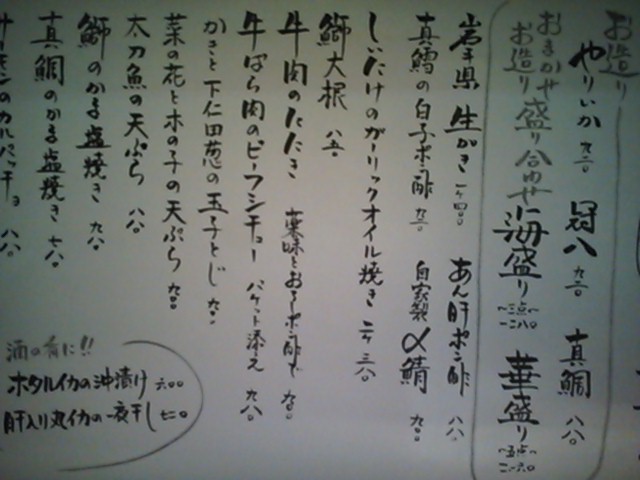 お造り
やりいか 九二〇 冠八 九二〇 真鯛 八八〇
おまかせ
お造り盛り合わせ 海盛り 〜三点〜 一二八〇 華盛り 〜五点〜
岩手県 生がき 一ヶ 四〇〇 あん肝ポン酢 八八〇
真鱈の白子ポン酢 九二〇 自家製〆鯖 九〇〇
しいたけのガーリックオイル焼き 二ヶ 三八〇
鰤大根 八五〇
牛肉のたたき 薬味とおろしポン酢で 九八〇
牛ばら肉のビーフシチュー バケット添え 九八〇
かきと下仁田葱の玉子とじ 九〇〇
菜の花と木の子の天ぷら 九〇〇
太刀魚の天ぷら 八八〇
鰤のかま塩焼き 九八〇
真鯛のかま塩焼き 七八〇
サーモンのカルパッチョ 八八〇
酒の肴に!!
ホタルイカの沖漬け 六〇〇
肝入り丸イカの一夜干し 七二〇